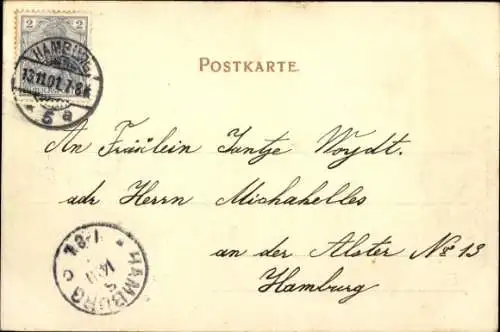 2 2
HAMBURG
13.11.01. 7-8 N.
* 5 a
POSTKARTE.
An Fräulein Jantje Woydt.
adr Herrn Michahelles
an der Alster No 13
Hamburg
HAMBURG